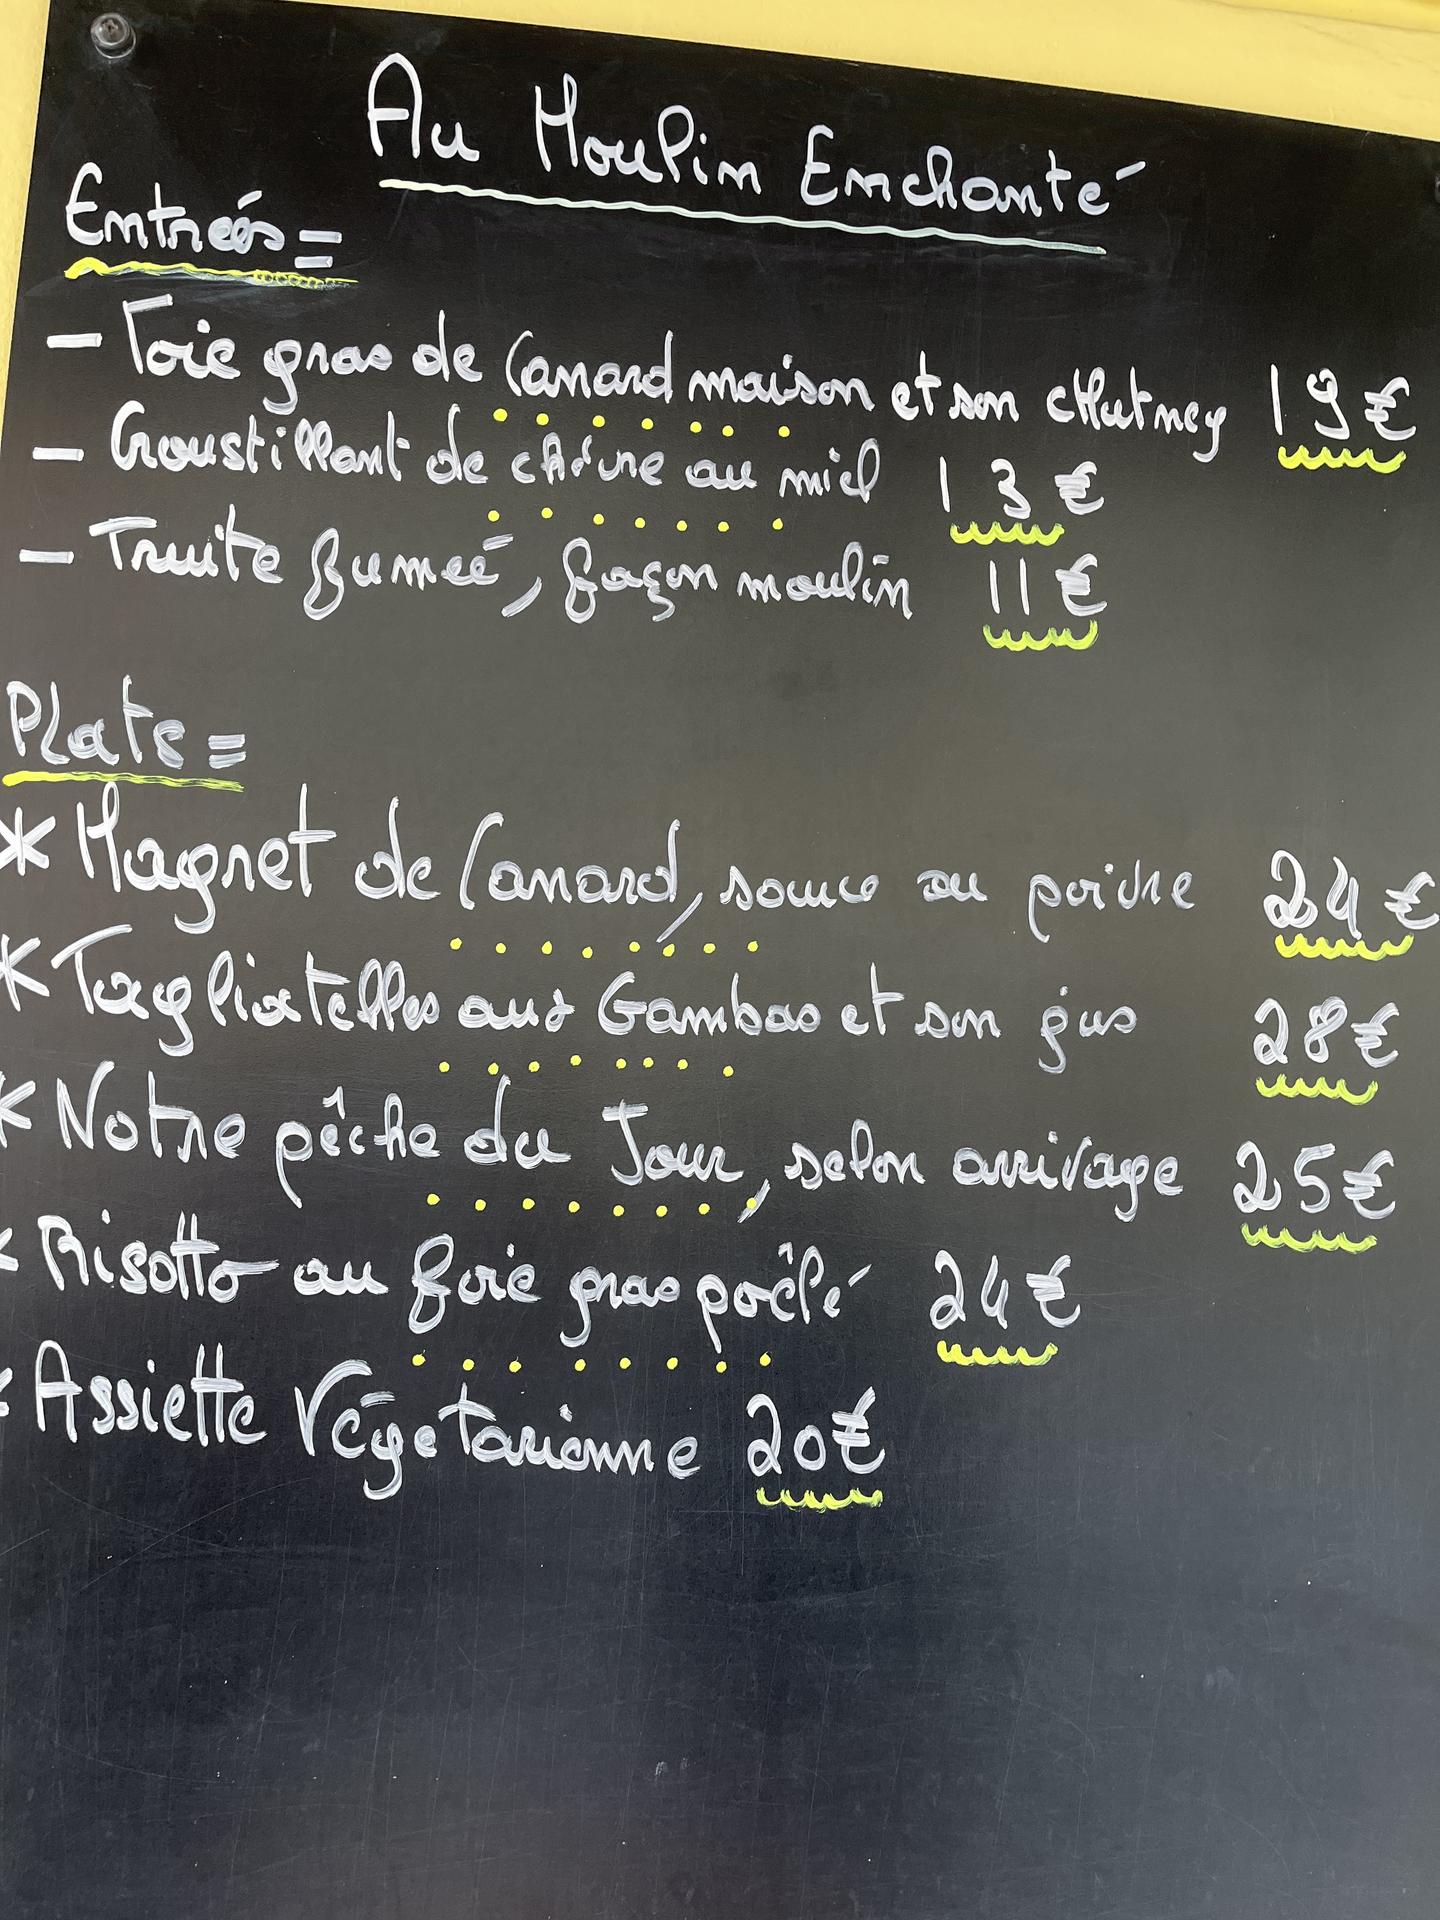 Au Moulin Enchanté
Entrées =
- Foie gras de Canard maison et son cHutney 19€
- Croustillant de chèvre au miel 13€
- Truite fumeé, façon moulin 11€
Plats =
* Magret de Canard, sauce au poivre 24€
* Tagliatelles aux Gambas et son jus 28€
* Notre pêche du Jour, selon arrivage 25€
* Risotto au foie gras poêlé 24€
* Assiette Végétarienne 20€